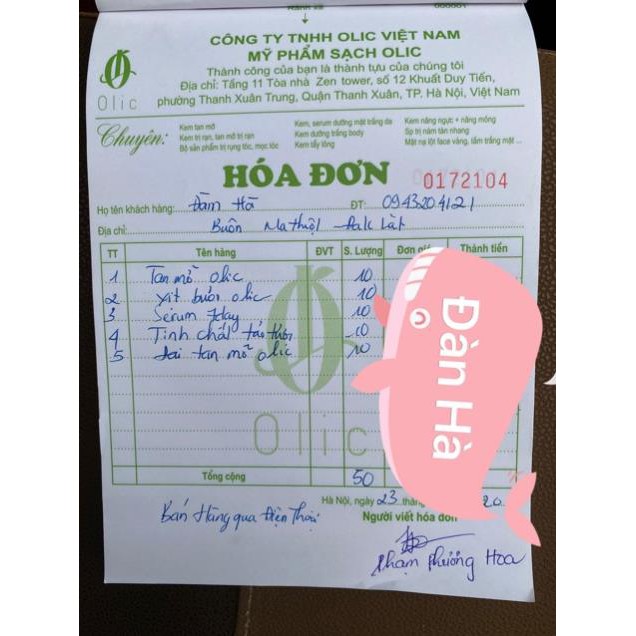 000001
CÔNG TY TNHH OLIC VIỆT NAM
MỸ PHẨM SẠCH OLIC
Thành công của bạn là thành tựu của chúng tôi
Địa chỉ: Tầng 11 Tòa nhà Zen tower, số 12 Khuất Duy Tiến,
phường Thanh Xuân Trung, Quận Thanh Xuân, TP. Hà Nội, Việt Nam
Olic
Chuyên:
Kem tan mỡ
Kem trị rạn, tan mỡ trị rạn
Bộ sản phẩm trị rụng tóc, mọc tóc
Kem, serum dưỡng mặt trắng da
Kem dưỡng trắng body
Kem tẩy lông
Kem nâng ngực + nâng mông
Sp trị nám tàn nhang
Mặt nạ lột face vàng, tắm trắng mặt ...
HÓA ĐƠN 0172104
Họ tên khách hàng: Đàm Hà ĐT: 0943204121
Địa chỉ: Buôn Ma thuột
TT Tên hàng ĐVT S. Lượng Đơn giá Thành tiền
1 Tan mỡ olic 10
2 xịt bưởi olic 10
3 Serum 7day 10
4 Tinh chất 10
5 đai tan mỡ olic 10
Olic
Đàn Hà
Tổng cộng 50
Hà Nội, ngày 23 thán 20
Bán Hàng qua Điện Thoại
Người viết hóa đơn
Phạm Phương Hoa